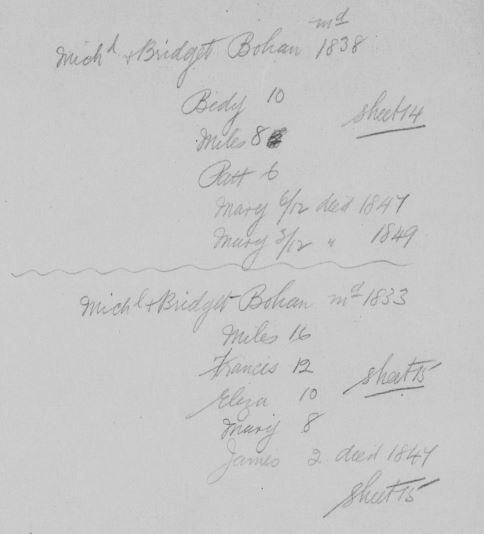 Mich^d + Bridget Bohan m^d 1838
Bidy 10
sheet 14
Miles 8
Patt 6
Mary 6/12 died 1847
Mary 3/12 " 1849
Mich^l + Bridget Bohan m^d 1833
Miles 16
Francis 12
sheet 15
Eliza 10
Mary 8
James 2 died 1847
sheet 15